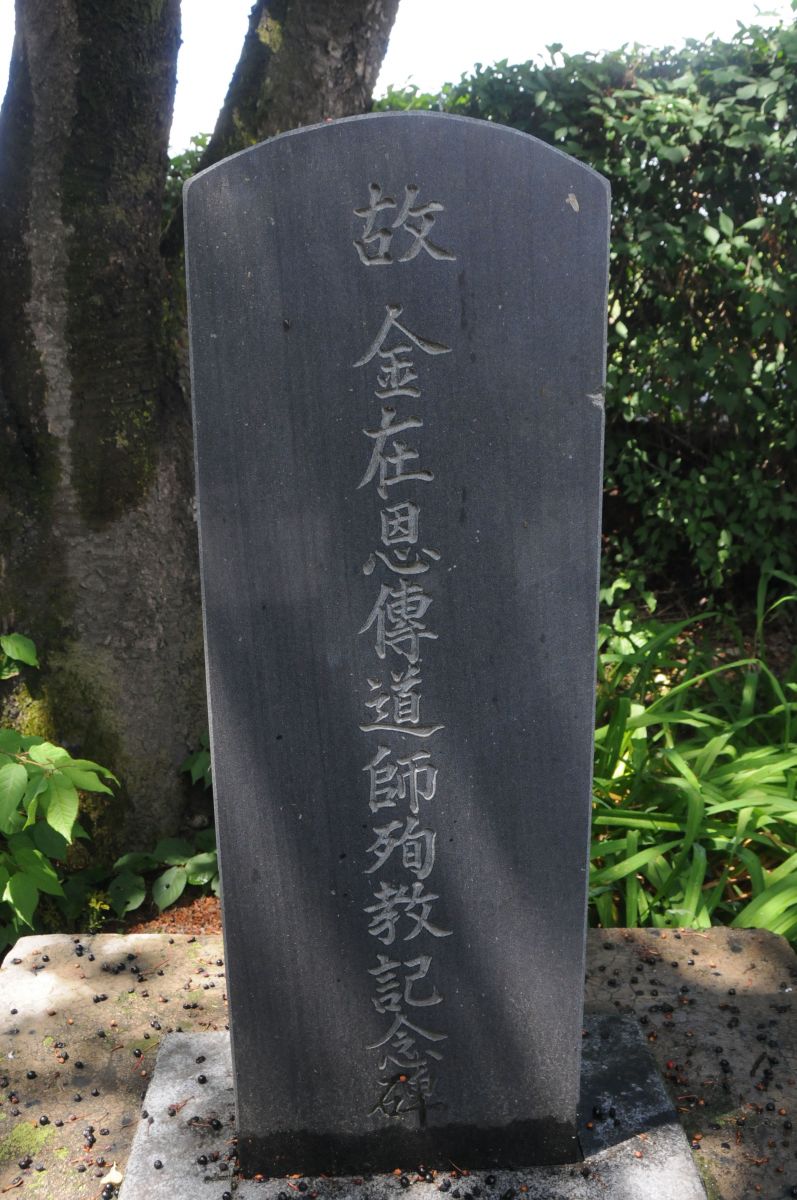 故 金在恩傳道師殉教記念碑